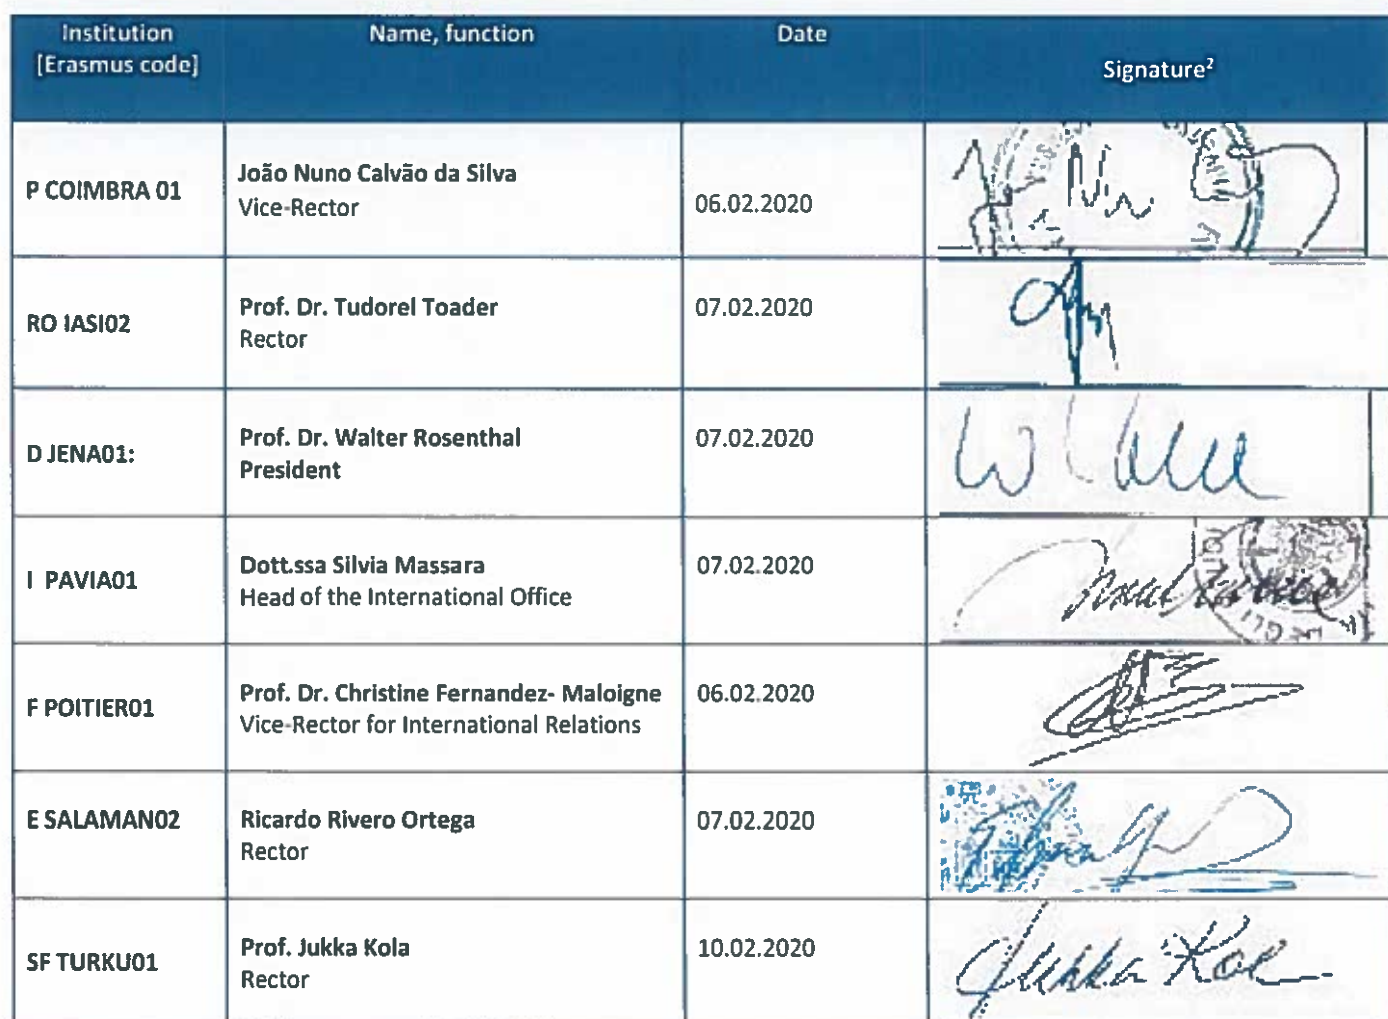 Institution
[Erasmus code]
Name, function
Date
Signature²
P COIMBRA 01
João Nuno Calvão da Silva
Vice-Rector
06.02.2020
RO IASI02
Prof. Dr. Tudorel Toader
Rector
07.02.2020
D JENA01:
Prof. Dr. Walter Rosenthal
President
07.02.2020
I PAVIA01
Dott.ssa Silvia Massara
Head of the International Office
07.02.2020
F POITIER01
Prof. Dr. Christine Fernandez- Maloigne
Vice-Rector for International Relations
06.02.2020
E SALAMAN02
Ricardo Rivero Ortega
Rector
07.02.2020
SF TURKU01
Prof. Jukka Kola
Rector
10.02.2020
Jukka Kola